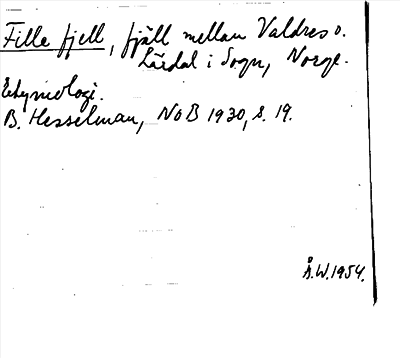 Fille fjell, fjäll mellan Valdres o.
Lärdal i Sogn, Norge.
Etymologi.
B. Hesselman, NoB 1930, s. 19.
Å.W. 1954.